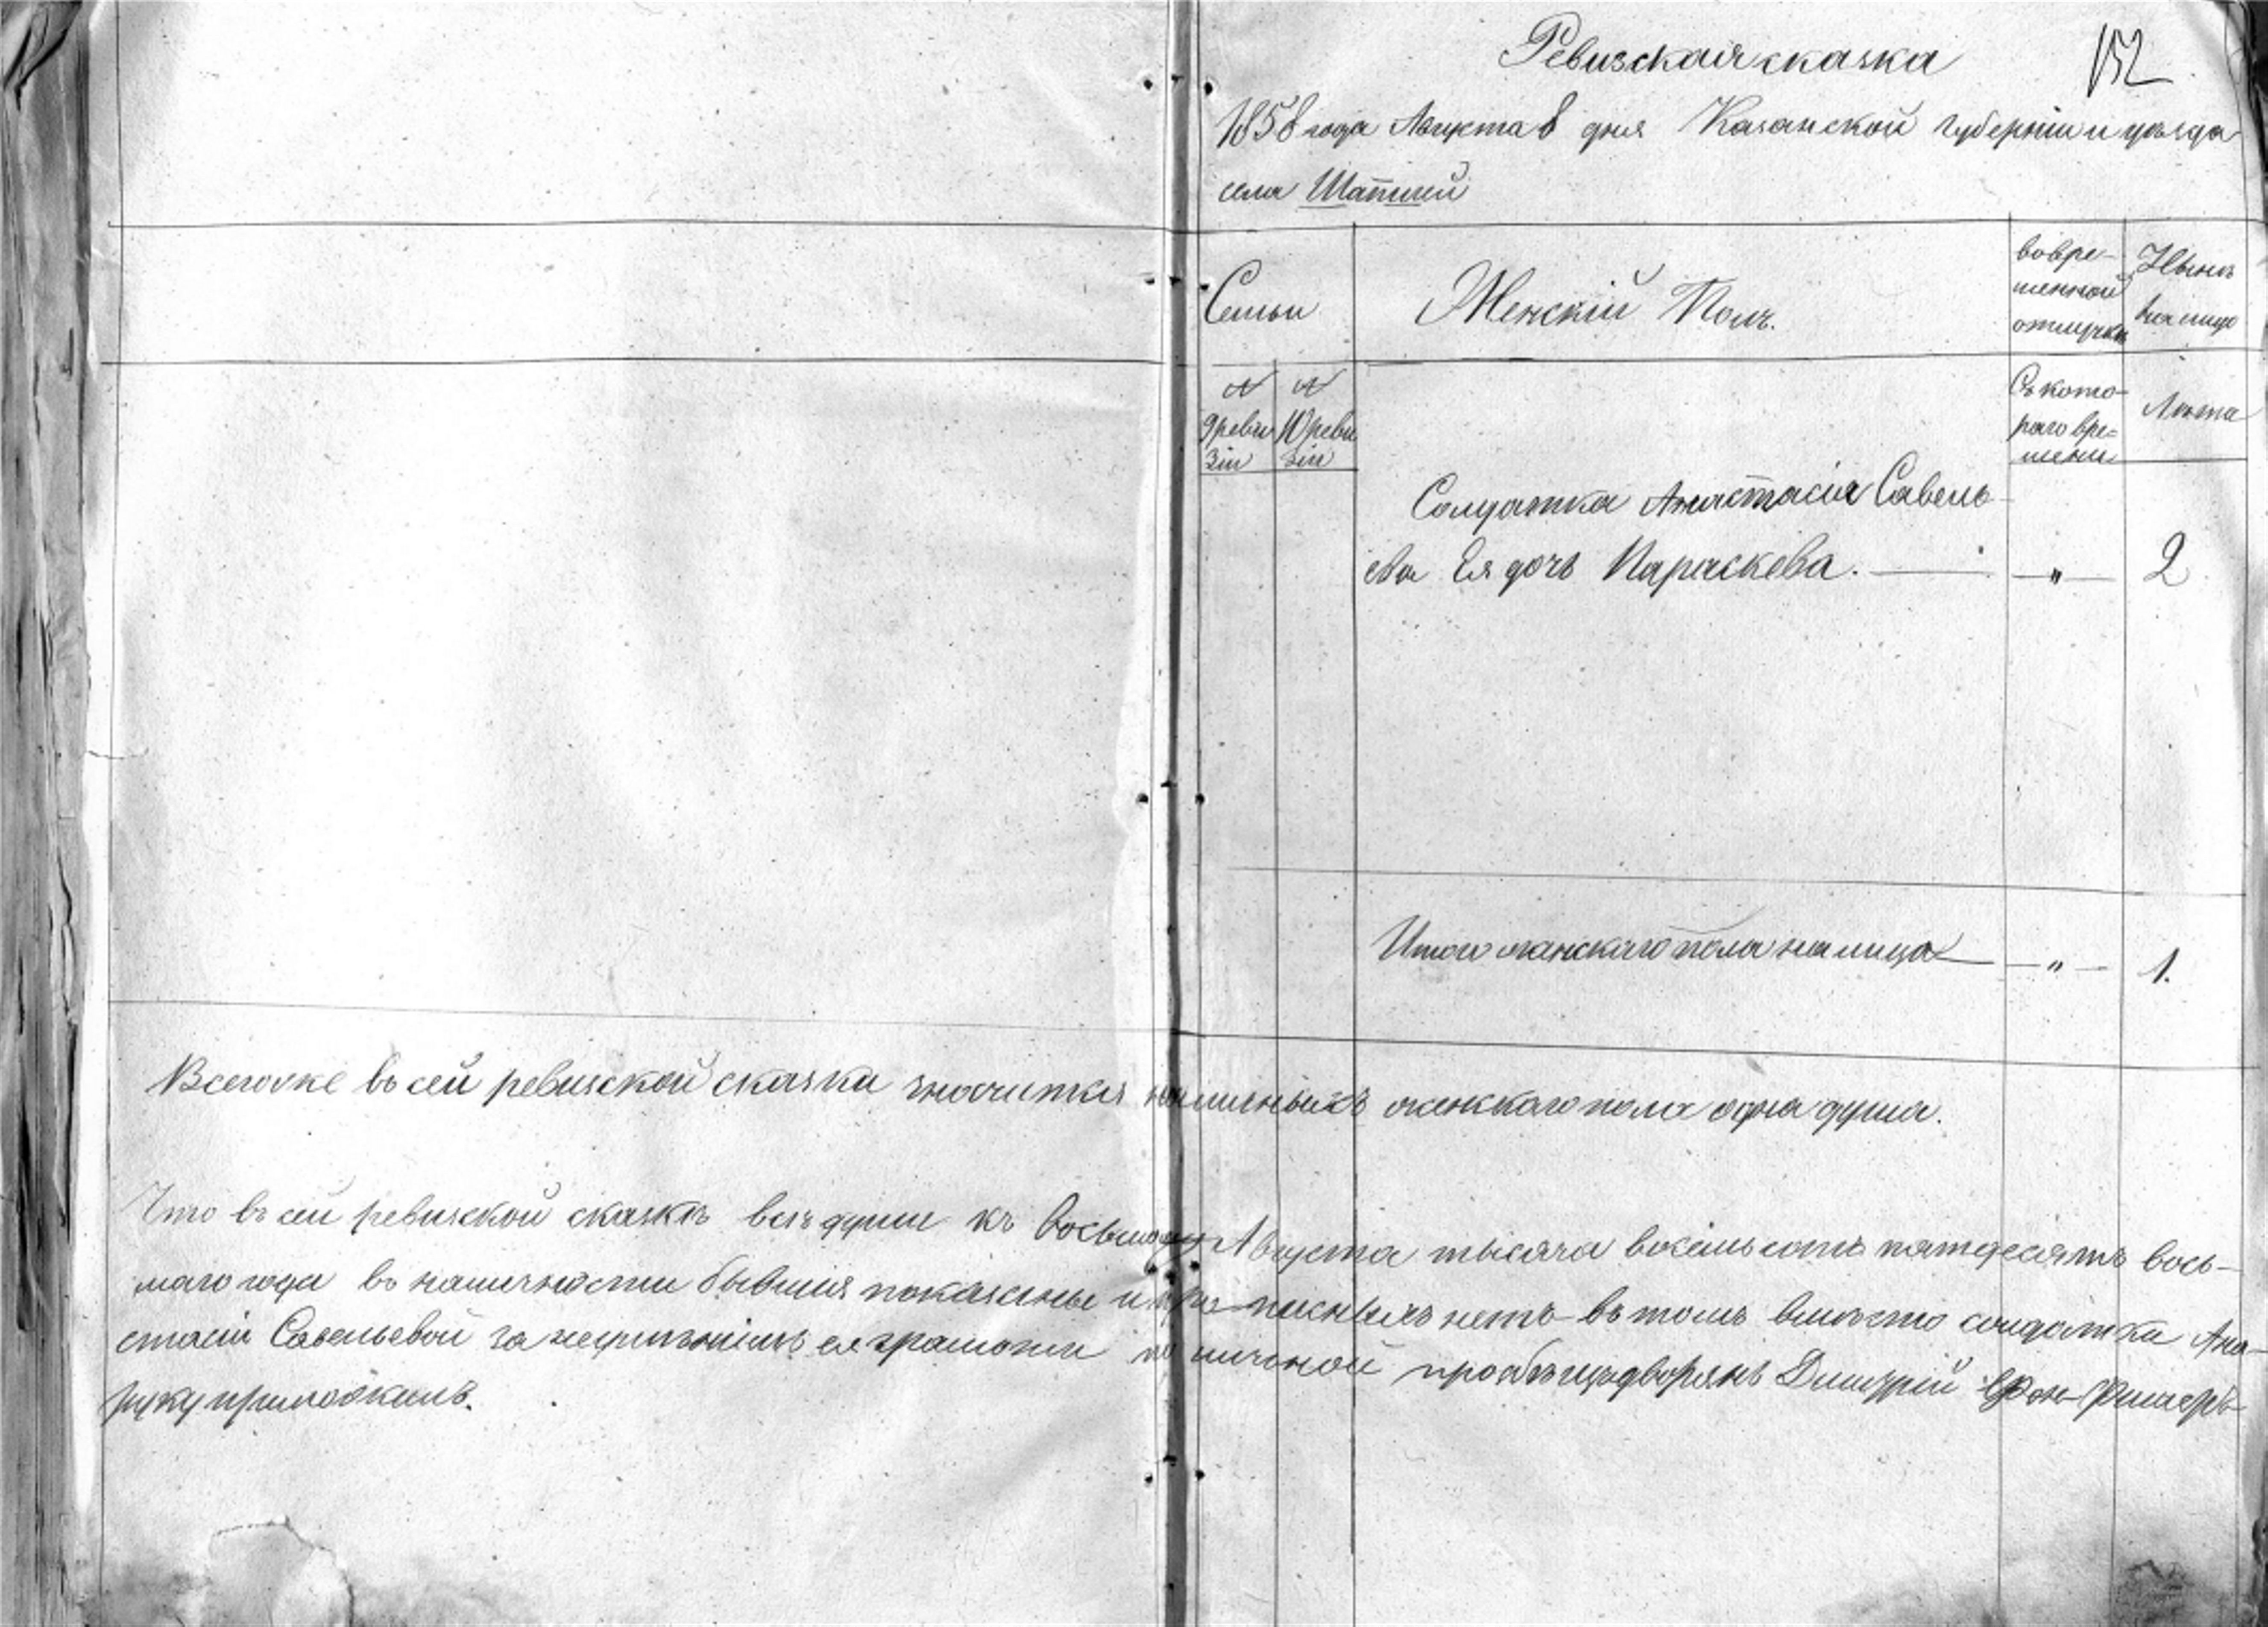 Ревизская сказка
152
1858 года Августа 8 дня Казанской губерніи и уѣзда
села Шапшей
Семьи
Женскій Полъ.
во вре-
менной
отлучки
Нынѣ
на лицо
N
9 реви
зіи
N
10 реви
зіи
Съ кото-
раго вре-
мени
Лѣта
Солдатка Анастасія Савель-
ева Ея дочь Параскева. — „ — 2
Итого женскаго пола на лицо — „ — 1.
Всего же въ сей ревизской сказки значится наличныхъ женскаго пола одна душа.
Что въ сей ревизской сказкѣ всѣ души къ восьмому Августа тысяча восемь сотъ пятдесятъ вось-
маго года въ наличности бывшія показаны и прописныхъ нетъ въ томъ вместо солдатки Ана-
стасіи Савельевой за неумѣніемъ ея грамоте по личной прозбѣ изъ дворянъ Дмитрій Фон-
руку приложилъ.